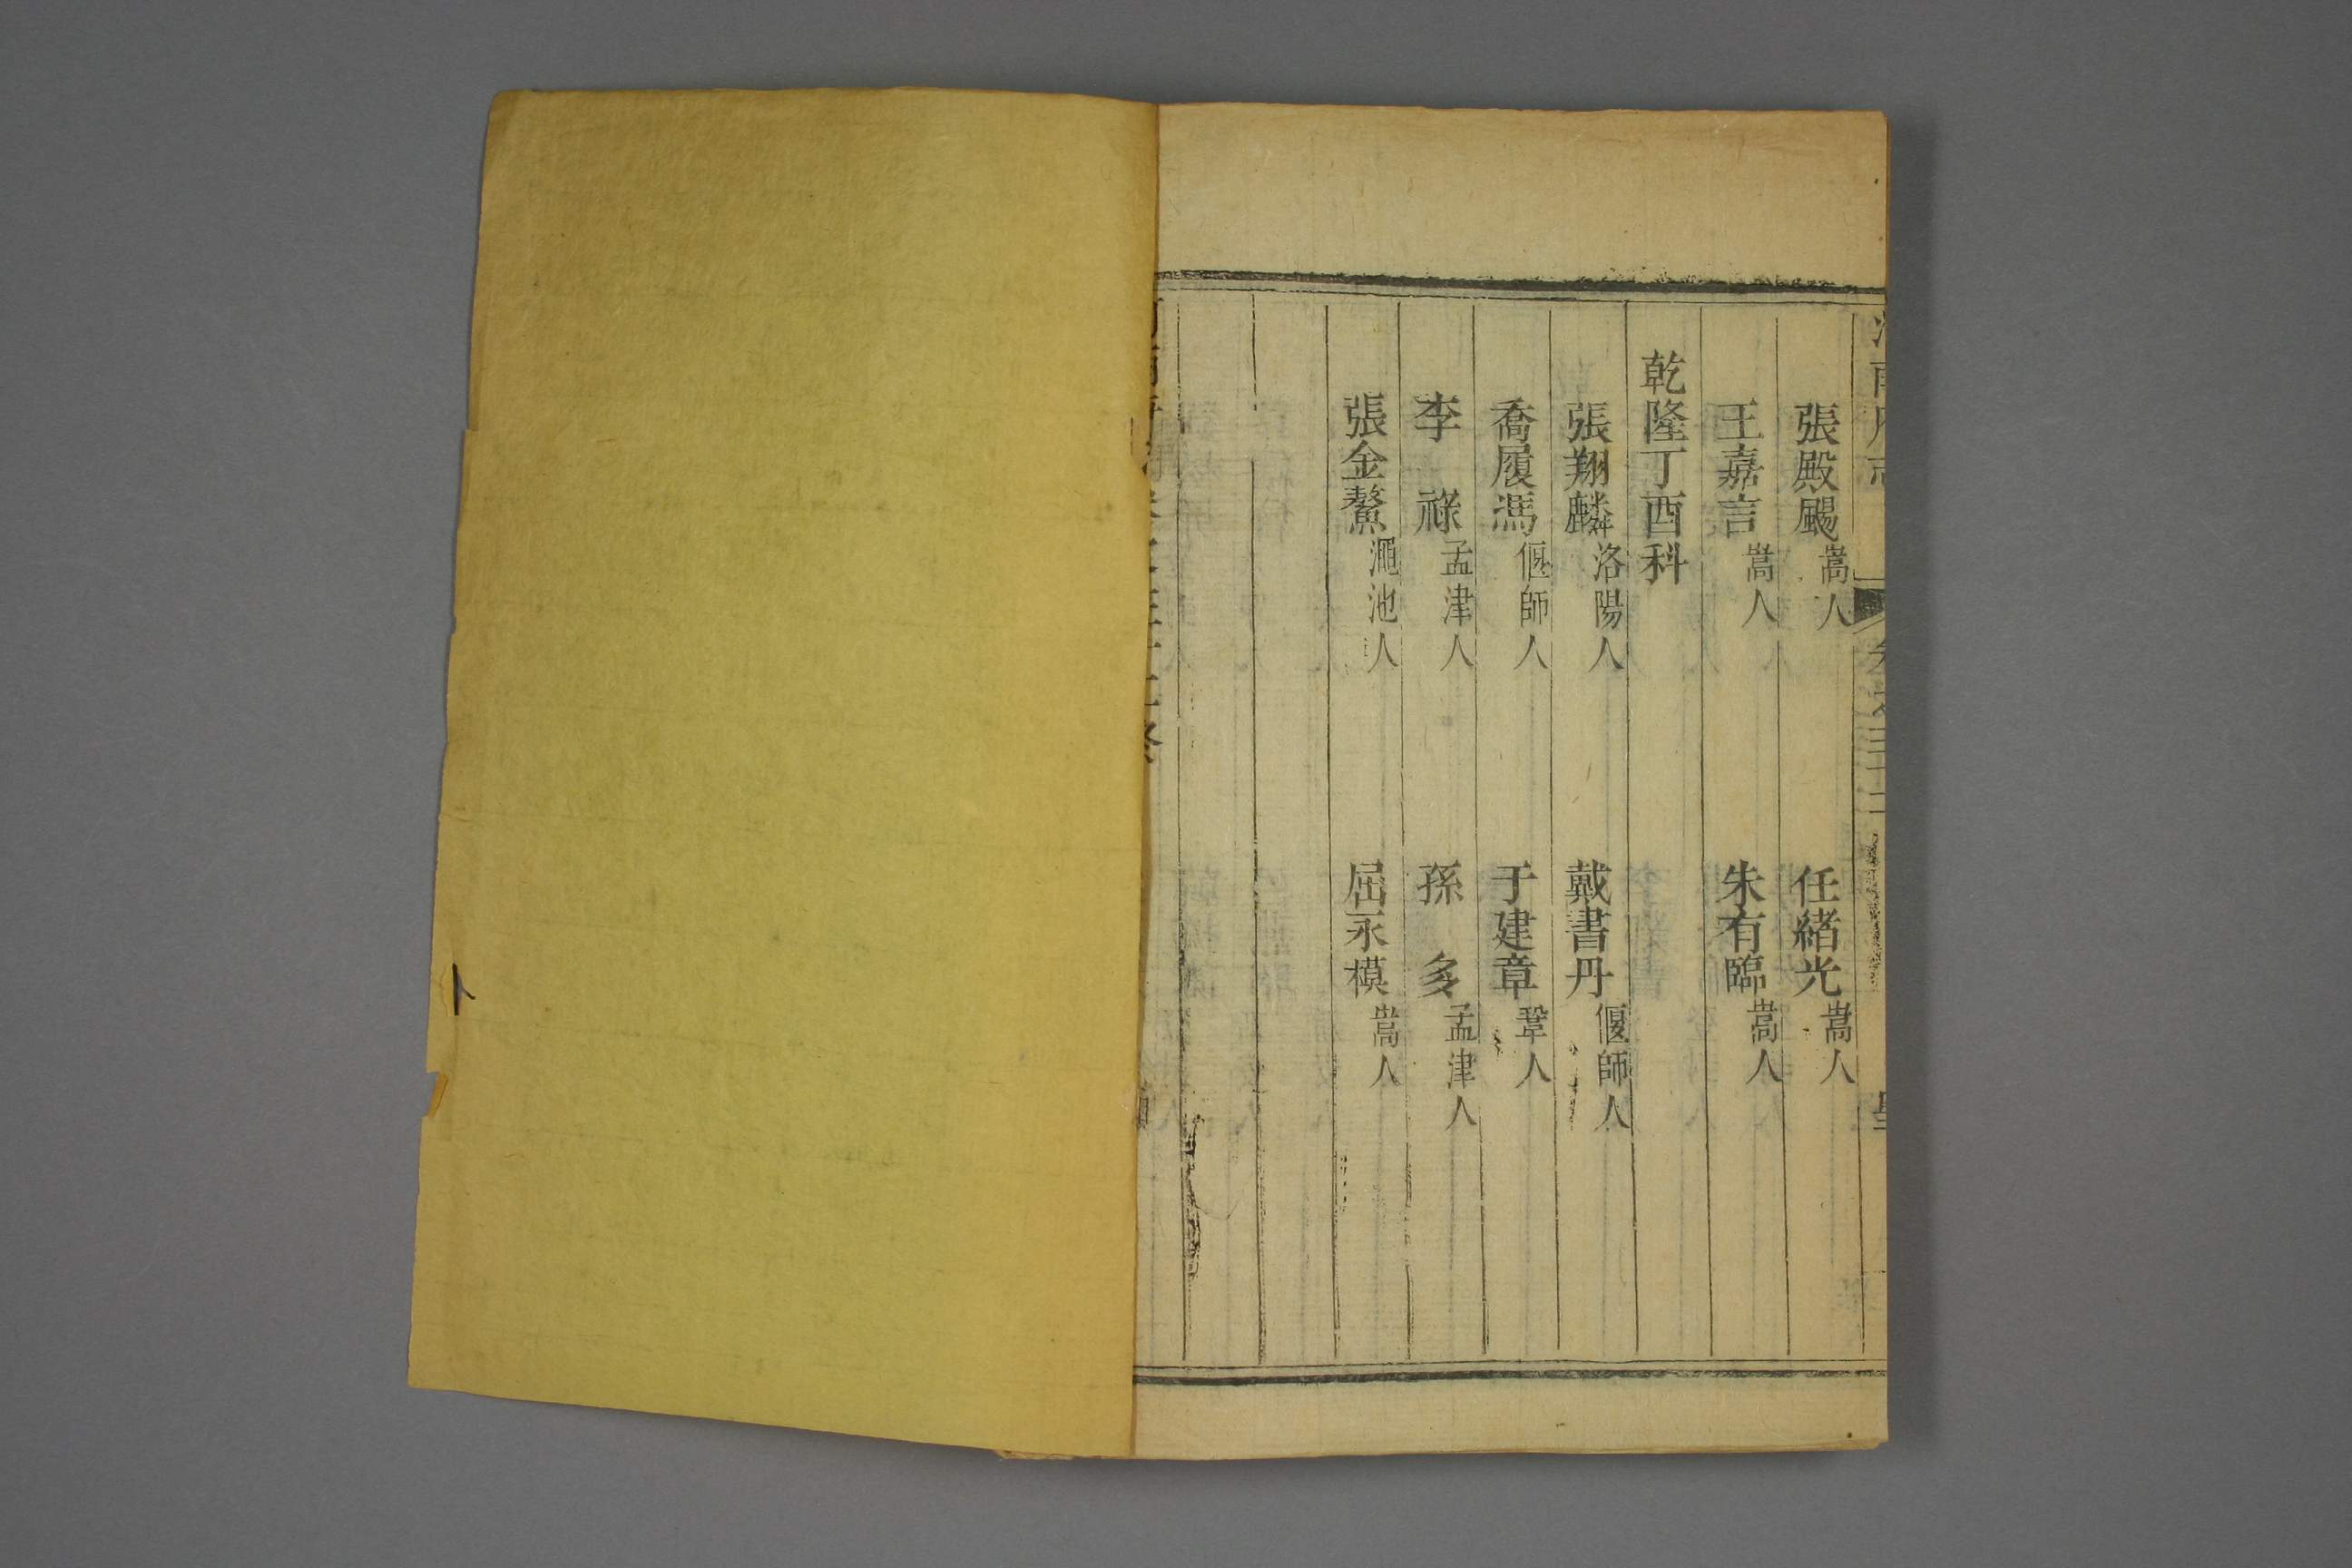 張殿颺嵩人 任緒光嵩人
王嘉言嵩人 朱有臨嵩人
乾隆丁酉科
張翔麟洛陽人 戴書丹偃師人
喬履馮偃師人 于建章鞏人
李祿孟津人 孫多孟津人
張金鰲澠池人 屈永模嵩人